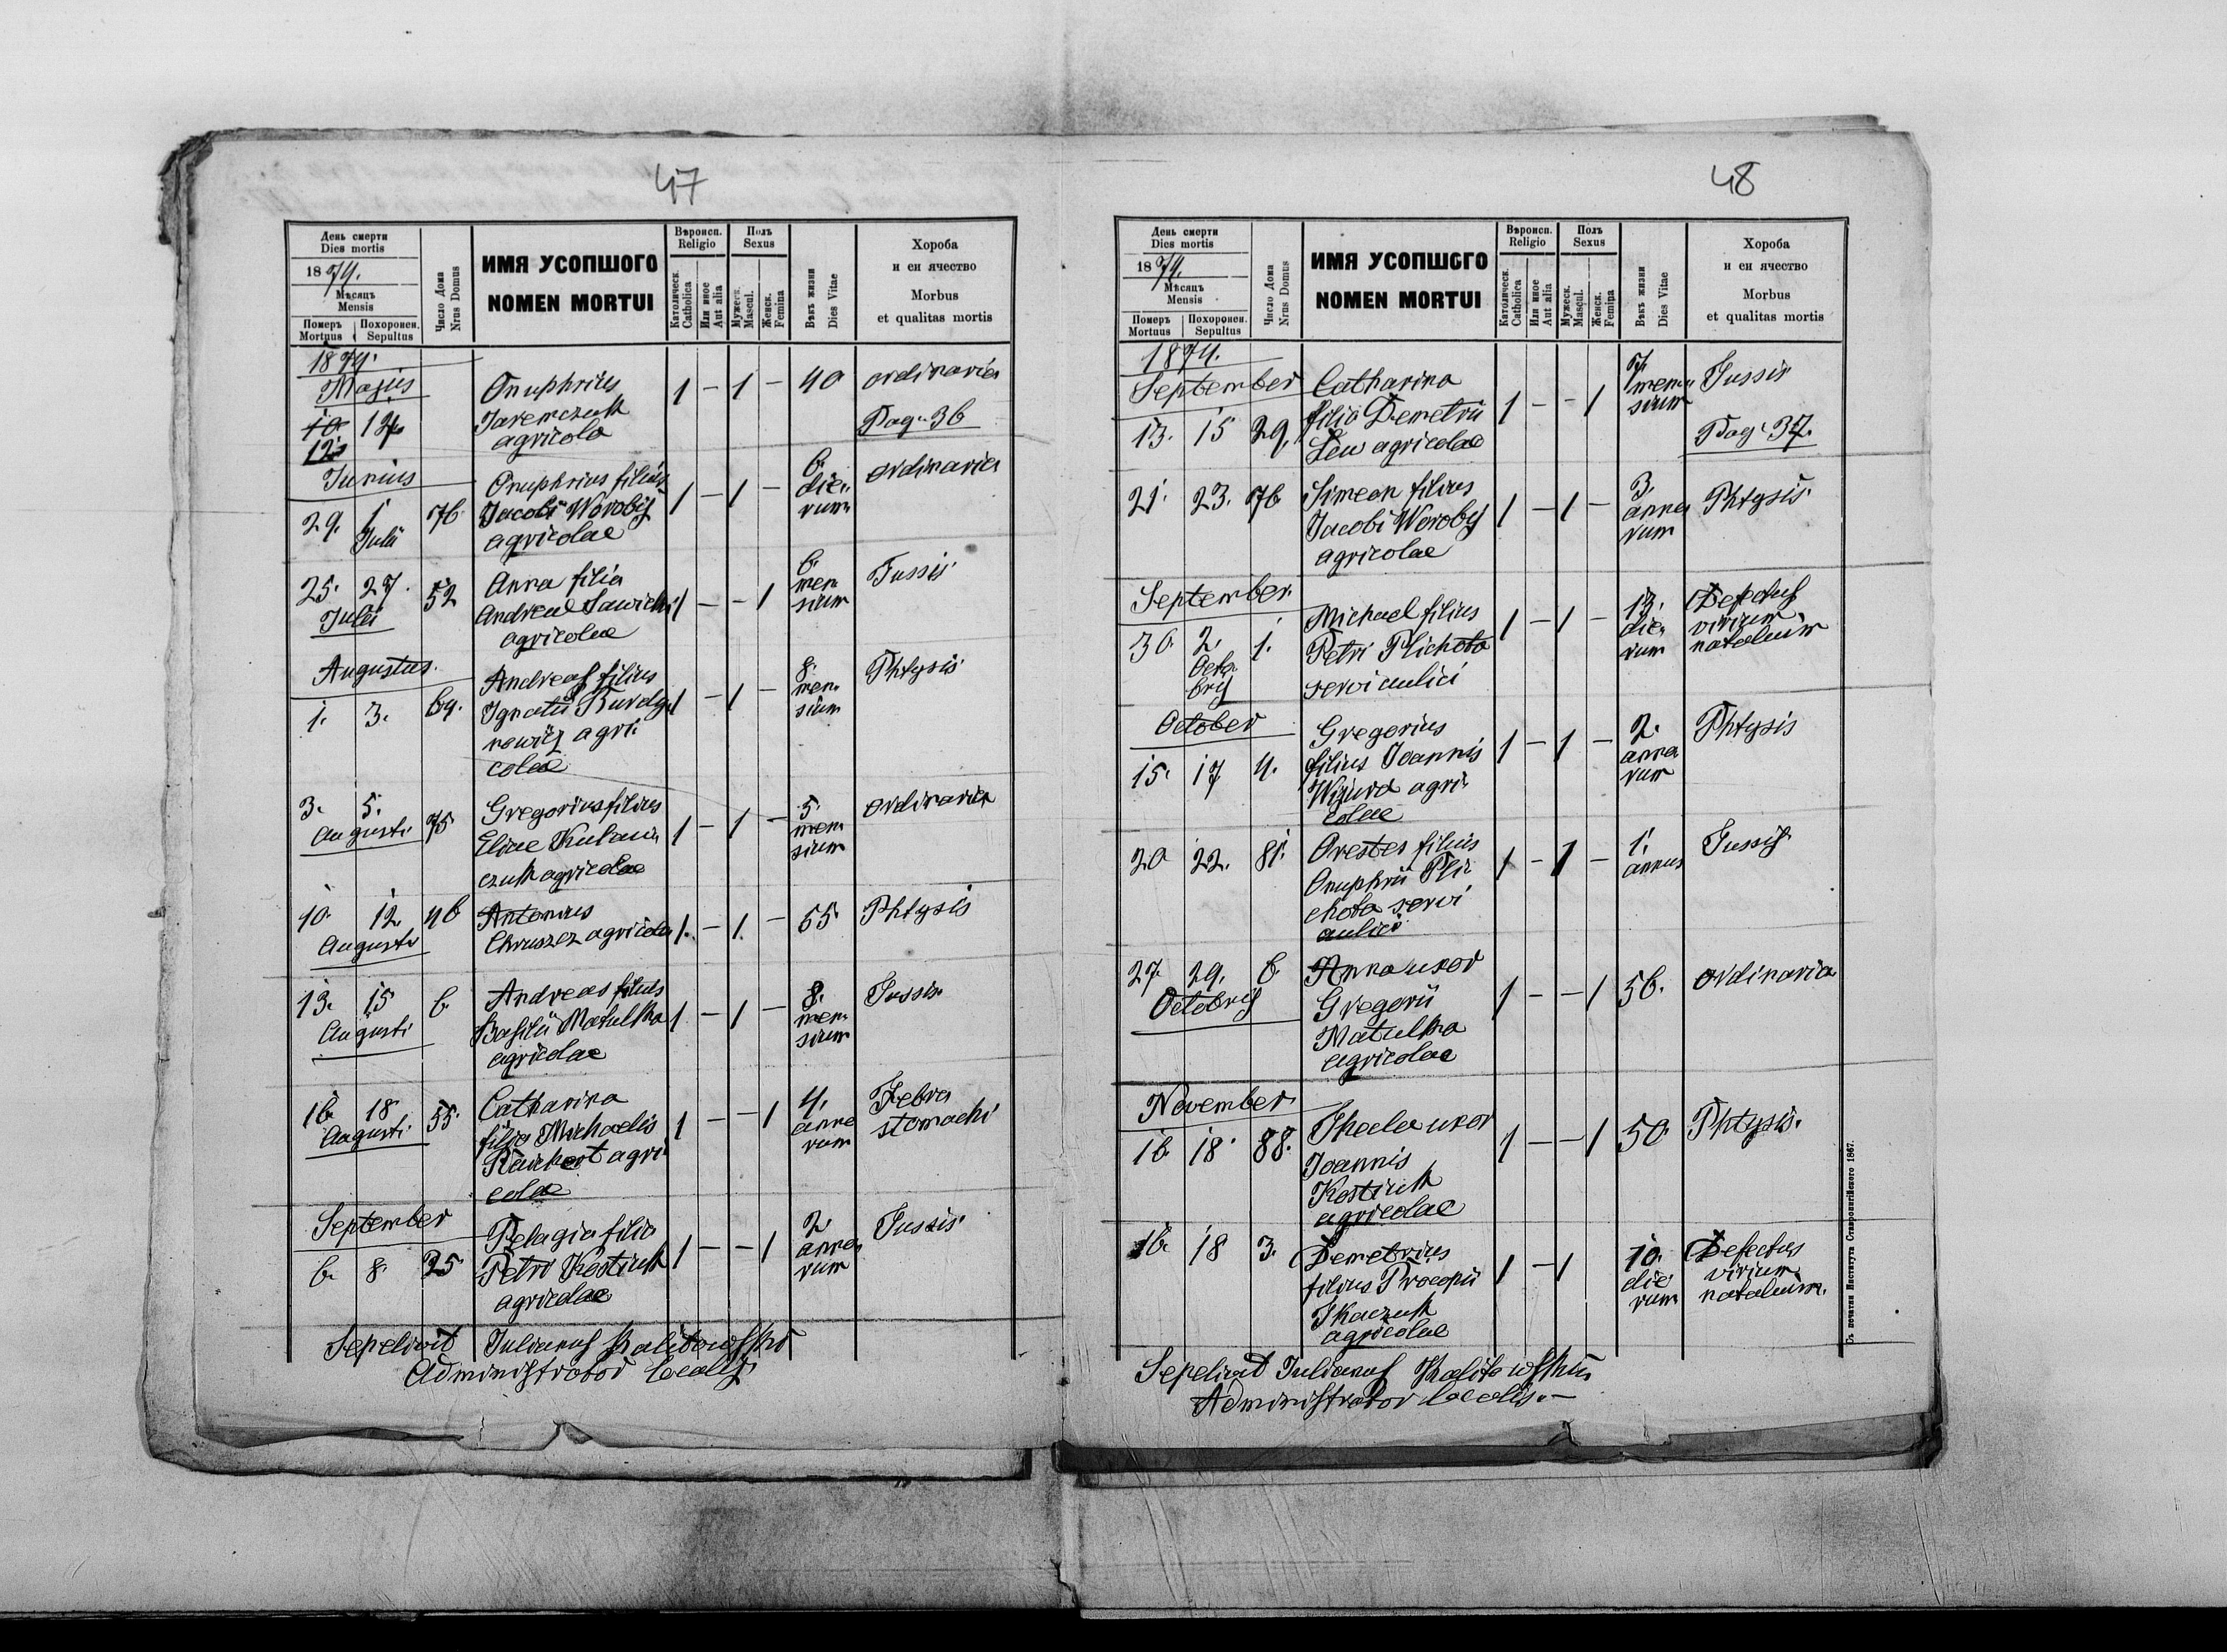 47
День смерти
Dies mortis
1874.
Мѣсяцъ
Mensis
Померъ
Mortuus
Похоронен.
Sepultus
Число Дома
Nrus Domus
ИМЯ УСОПШОГО
NOMEN MORTUI
Вѣроисп.
Religio
Католическ.
Catholica
Или иное
Aut alia
Полъ
Sexus
Мужеск.
Mascul.
Женск.
Femina
Вѣкъ жизни
Dies Vitae
Хороба
и еи ячество
Morbus
et qualitas mortis
1874.
Majus
Onuphrius 1 – 1 – 40 ordinaria
10. 12. Jaremczuk
12. agricola Pag. 36
Junius
Onuphrius filius 6. ordinaria
29. 1 76. Jacobi Worobij 1 – 1 – die-
Julii agricolae rum
25. 27. 52 Anna filia 6. Tussis
Julii Andreae Sawicki 1 – – 1 men
agricolae sium
Augustus.
Andreas filius 8. Phtysis
1. 3. 69. Ignatii 1 – 1 – men
agri sium
colae
3. 5. 75 Gregorius filius 5. ordinaria
Augusti Eliae 1 – 1 – men
czuk agricolae sium
10. 12. 46 Antonius 55 Phtysis
Augusti Chruszcz agricola 1. – 1. –
13. 15 6. Andreas filius 8. Tussis
Augusti Basilii Matulka 1 – 1 – men
agricolae sium
16 18 55. Catharina 4. Febra
Augusti filia Michaelis 1 – – 1 anno stomachi
agri rum
colae
September
Pelagia filia 2 Tussis
6. 8. 25 Petri Kostiuk 1 – – 1 anno
agricolae rum
Sepelivit Julianus Kalitowski
Administrator localis
48
День смерти
Dies mortis
1874.
Мѣсяцъ
Mensis
Померъ
Mortuus
Похоронен.
Sepultus
Число Дома
Nrus Domus
ИМЯ УСОПШОГО
NOMEN MORTUI
Вѣроисп.
Religio
Католическ.
Catholica
Или иное
Aut alia
Полъ
Sexus
Мужеск.
Mascul.
Женск.
Femina
Вѣкъ жизни
Dies Vitae
Хороба
и еи ячество
Morbus
et qualitas mortis
1874.
September Catharina 7. Tussis
13. 15 29. filia Demetrii 1 – – 1 men
Leu agricolae sium Pag. 37.
21. 23. 76 Simeon filius 3. Phtysis
Jacobi Worobij 1 – 1 – anno
agricolae rum
September
Michael filius 13. Defectus
30. 2. 1. Petri Plichota 1 – 1 – die- virium
Octo servi aulici rum natalium
bris
October Gregorius 2. Phtysis
15. 17 4. filius Joannis 1 – 1 – anno
agri rum
colae
20 22. 81. Orestes filius 1. Tussis
Onuphrii Pli 1 – 1 – annus
chota servi
aulici
27. 29. 6. Anna uxor 56. ordinaria
Octobris Gregorii 1 – – 1
Matulka
agricolae
November
16 18. 88. Thecla uxor 1 – – 1 50. Phtysis.
Joannis
Kostiuk
agricolae
16. 18 3. Demetrius 10. Defectus
filius Procopii 1 – 1 die virium
Tkaczuk rum natalium.
agricolae
Sepelivit Julianus Kalitowski
Administrator localis. –
Съ печатни Института Ставропигійского 1867.